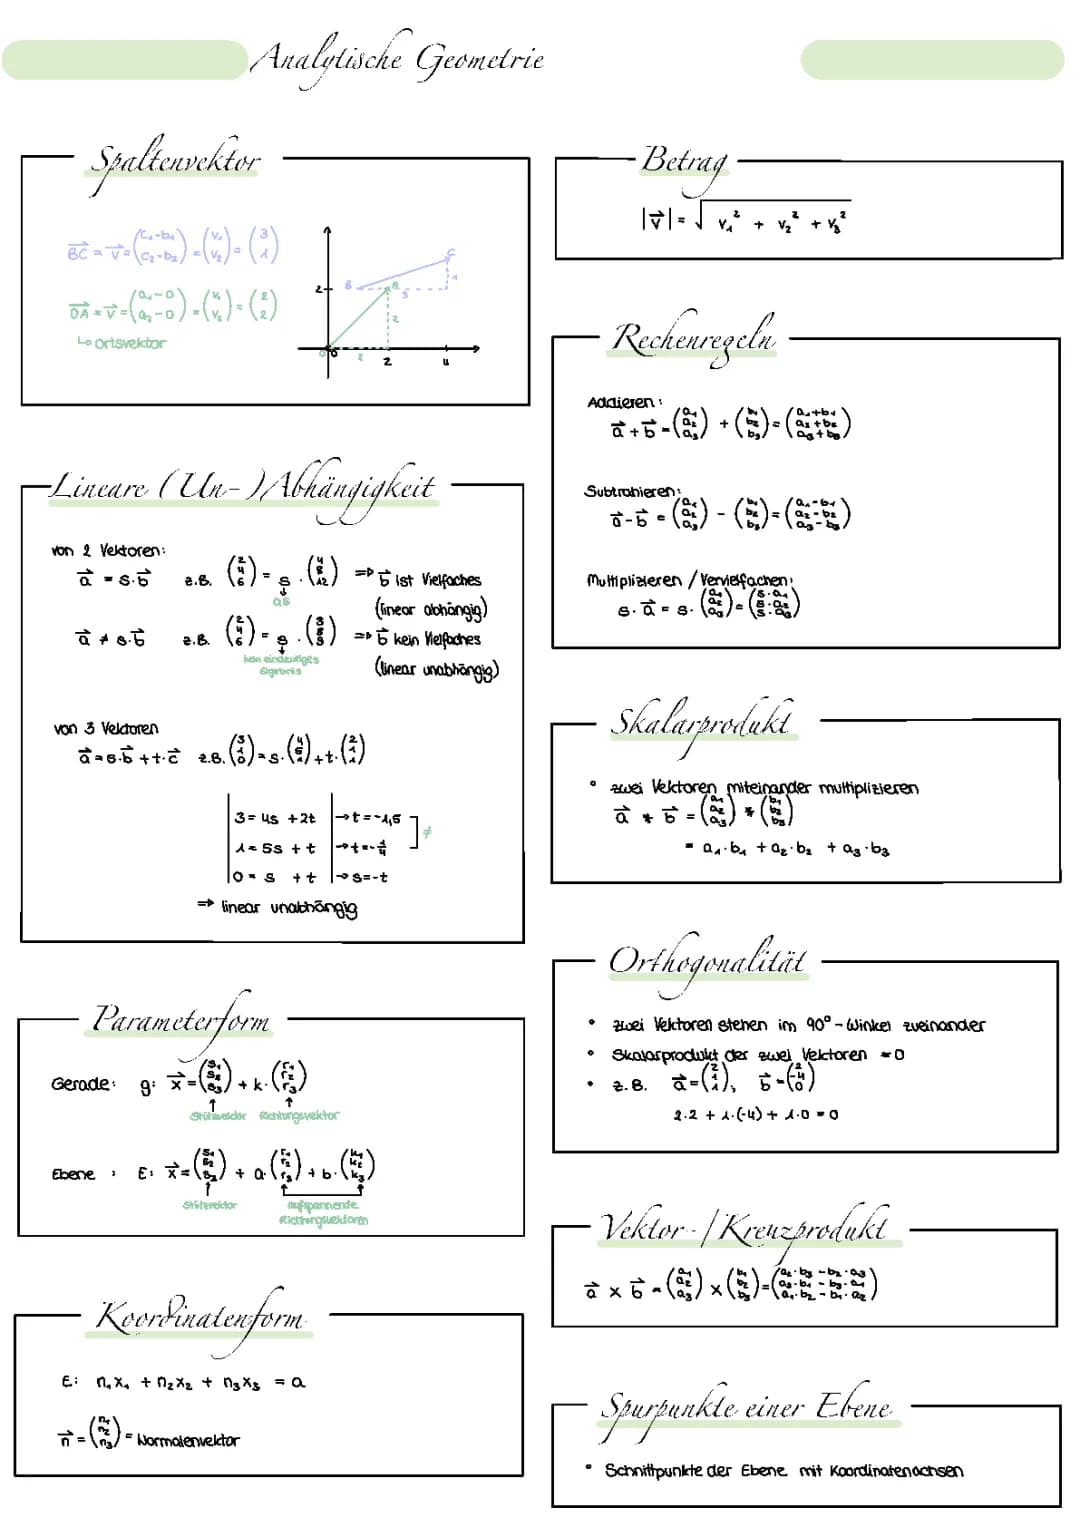 Analytische Geometrie
Spaltenvektor
BC = v = (c₁-b₁ / c₂-b₂) = (v₁ / v₂) = (3 / 1)
OA = v = (a₁-0 / a₂-0) = (v₁ / v₂) = (2 / 2)
↳ Ortsvektor
Lineare (Un-)Abhängigkeit
von 2 Vektoren:
a = s·b z.B. (2 / 4 / 6) = s · (4 / 8 / 12) => b ist Vielfaches
0,5
(linear abhängig)
a ≠ s·b z.B. (2 / 4 / 6) = s · (3 / 8 / 3) => b kein Vielfaches
kein eindeutiges
Ergebnis
(linear unabhängig)
von 3 Vektoren
a = s·b + t·c z.B. (3 / 1 / 0) = s· (4 / 5 / 1) + t· (2 / 1 / 1)
3 = 4s + 2t → t = -1,5
1 = 5s + t → t = -1/4 ≠
0 = s + t → s = -t
=> linear unabhängig
Parameterform
Gerade: g: x = (s₁ / s₂ / s₃) + k· (r₁ / r₂ / r₃)
Stützvektor Richtungsvektor
Ebene : E: x = (s₁ / s₂ / s₃) + a· (r₁ / r₂ / r₃) + b· (k₁ / k₂ / k₃)
Stützvektor aufspannende
Richtungsvektoren
Koordinatenform
E: n₁x₁ + n₂x₂ + n₃x₃ = a
n = (n₁ / n₂ / n₃) = Normalenvektor
Betrag
|v| = √ v₁² + v₂² + v₃²
Rechenregeln
Addieren:
a + b = (a₁ / a₂ / a₃) + (b₁ / b₂ / b₃) = (a₁+b₁ / a₂+b₂ / a₃+b₃)
Subtrahieren:
a - b = (a₁ / a₂ / a₃) - (b₁ / b₂ / b₃) = (a₁-b₁ / a₂-b₂ / a₃-b₃)
Multiplizieren / Vervielfachen:
s · a = s · (a₁ / a₂ / a₃) = (s·a₁ / s·a₂ / s·a₃)
Skalarprodukt
• zwei Vektoren miteinander multiplizieren
a * b = (a₁ / a₂ / a₃) * (b₁ / b₂ / b₃)
= a₁·b₁ + a₂·b₂ + a₃·b₃
Orthogonalität
• zwei Vektoren stehen im 90°-Winkel zueinander
• Skalarprodukt der zwei Vektoren = 0
• z.B. a = (2 / 1 / 1), b = (2 / -4 / 0)
2·2 + 1·(-4) + 1·0 = 0
Vektor-/Kreuzprodukt
a × b = (a₁ / a₂ / a₃) × (b₁ / b₂ / b₃) = (a₂·b₃ - b₂·a₃ / a₃·b₁ - b₃·a₁ / a₁·b₂ - b₁·a₂)
Spurpunkte einer Ebene
• Schnittpunkte der Ebene mit Koordinatenachsen